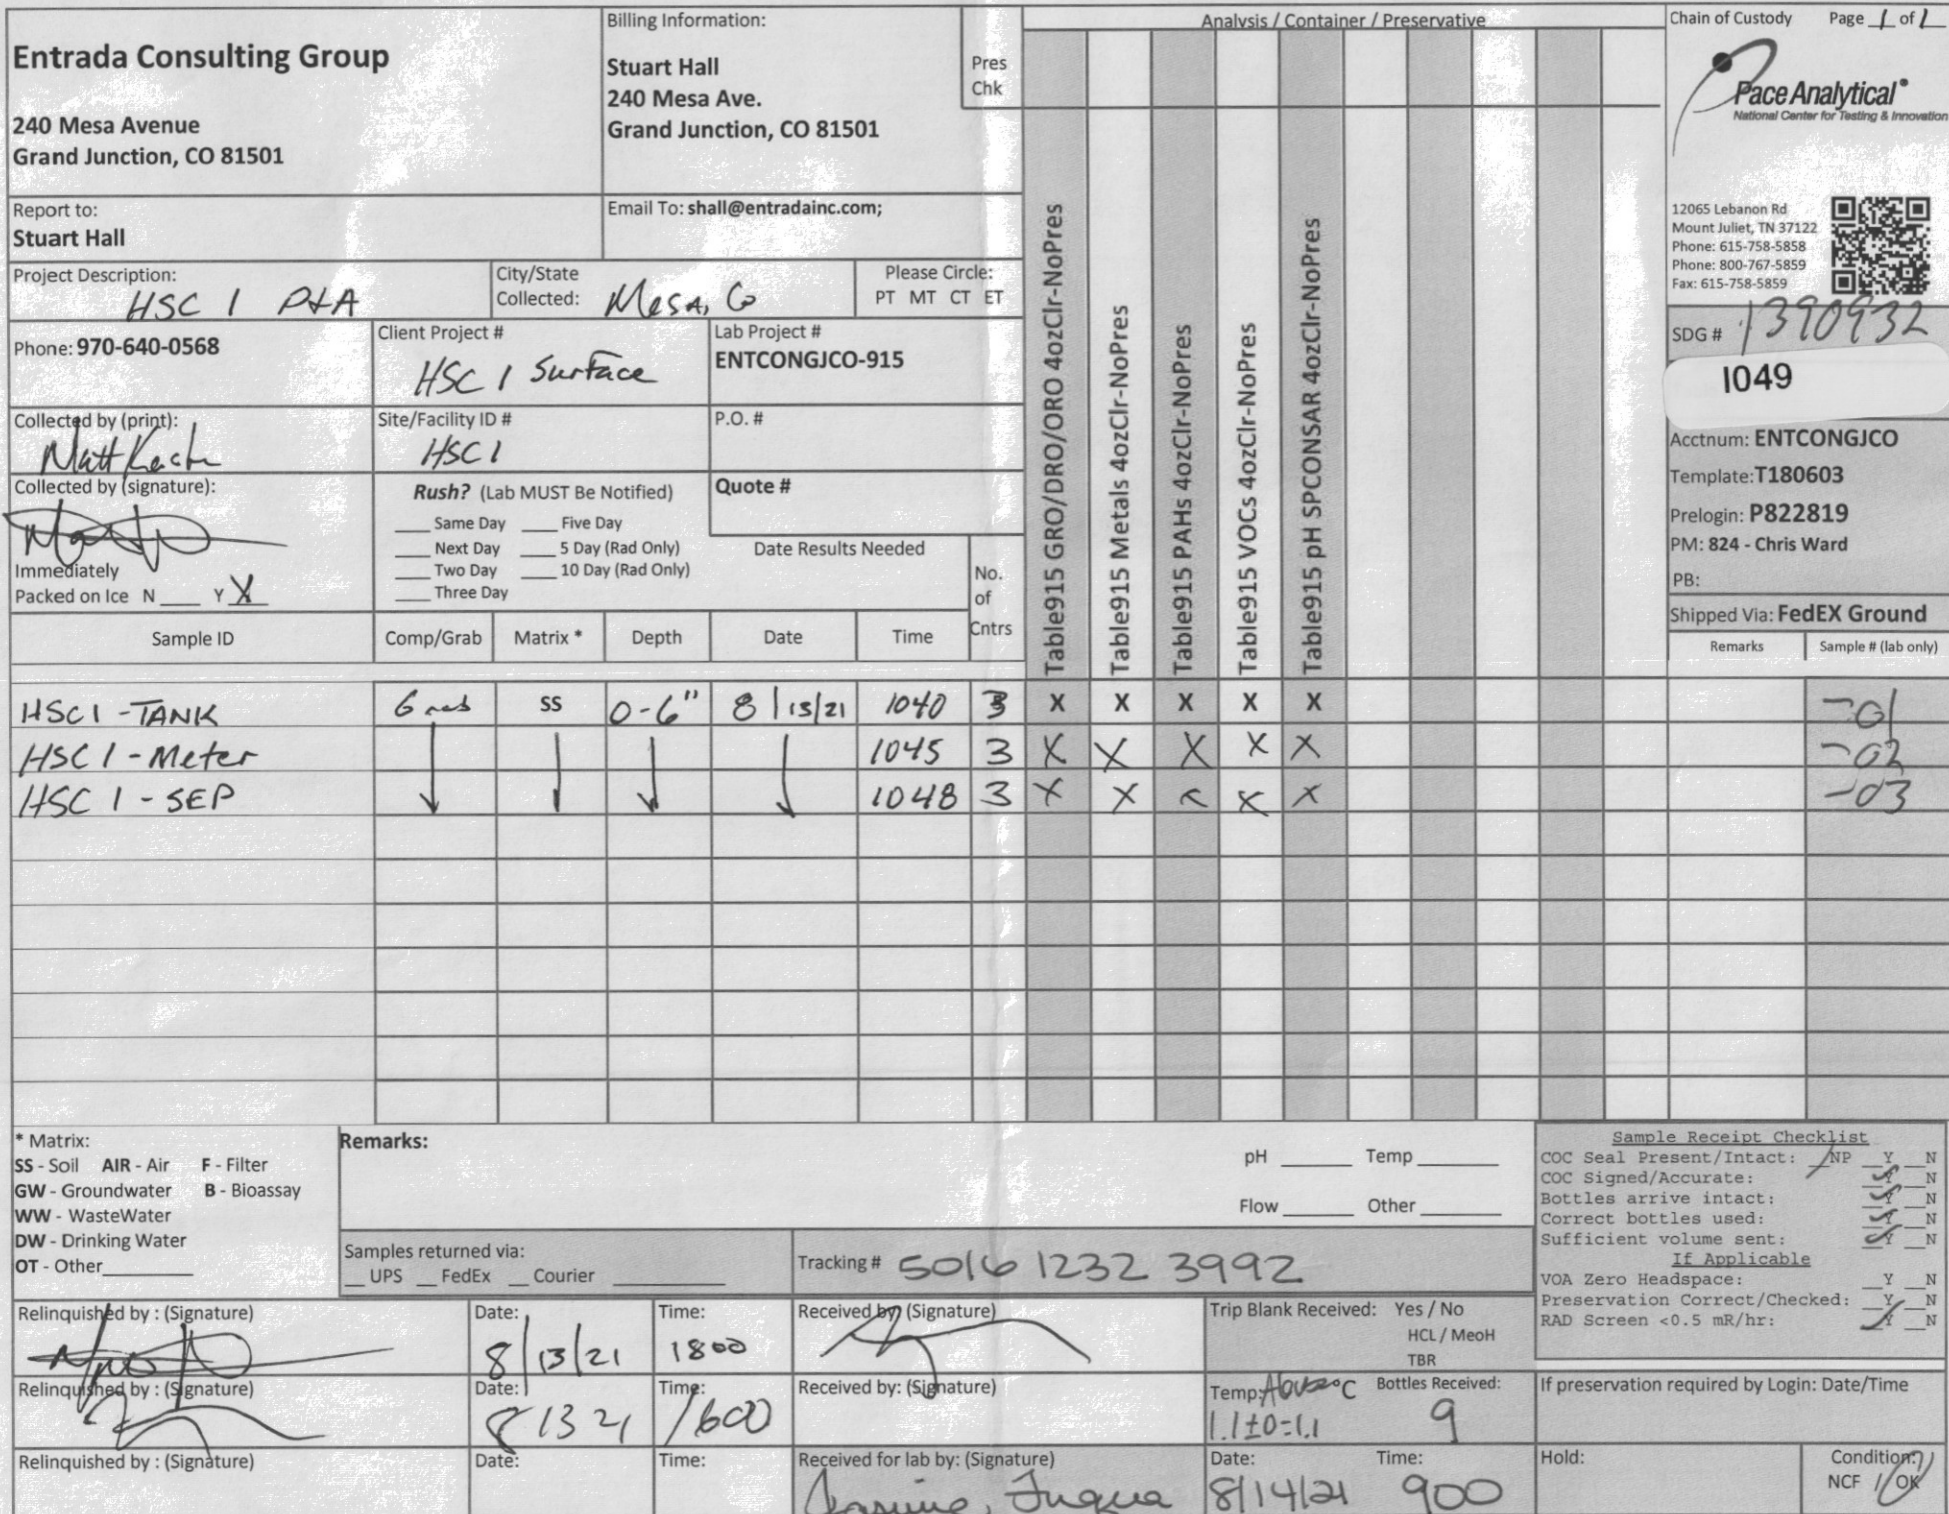 Entrada Consulting Group
240 Mesa Avenue
Grand Junction, CO 81501
Billing Information:
Stuart Hall
240 Mesa Ave.
Grand Junction, CO 81501
Pres
Chk
Analysis / Container / Preservative
Chain of Custody Page 1 of 1
Pace Analytical®
National Center for Testing & Innovation
12065 Lebanon Rd
Mount Juliet, TN 37122
Phone: 615-758-5858
Phone: 800-767-5859
Fax: 615-758-5859
Report to:
Stuart Hall
Email To: shall@entradainc.com;
Project Description:
HSC 1 P&A
City/State
Collected: Mesa, Co
Please Circle:
PT MT CT ET
Phone: 970-640-0568
Client Project #
HSC 1 Surface
Lab Project #
ENTCONGJCO-915
SDG # 1390932
I049
Collected by (print):
Matt
Site/Facility ID #
HSC1
P.O. #
Acctnum: ENTCONGJCO
Template: T180603
Prelogin: P822819
PM: 824 - Chris Ward
PB:
Shipped Via: FedEX Ground
Collected by (signature):
Immediately
Packed on Ice N ___ Y X
Rush? (Lab MUST Be Notified)
___ Same Day ___ Five Day
___ Next Day ___ 5 Day (Rad Only)
___ Two Day ___ 10 Day (Rad Only)
___ Three Day
Quote #
Date Results Needed
No.
of
Cntrs
Table915 GRO/DRO/ORO 4ozClr-NoPres
Table915 Metals 4ozClr-NoPres
Table915 PAHs 4ozClr-NoPres
Table915 VOCs 4ozClr-NoPres
Table915 pH SPCONSAR 4ozClr-NoPres
Sample ID Comp/Grab Matrix * Depth Date Time Remarks Sample # (lab only)
HSC1 - TANK Grab SS 0-6" 8/13/21 1040 3 X X X X X -01
HSC 1 - Meter 1045 3 X X X X X -02
HSC 1 - SEP 1048 3 X X X X X -03
* Matrix:
SS - Soil AIR - Air F - Filter
GW - Groundwater B - Bioassay
WW - WasteWater
DW - Drinking Water
OT - Other
Remarks:
pH ___ Temp ___
Flow ___ Other ___
Samples returned via:
__ UPS __ FedEx __ Courier
Tracking # 5016 1232 3992
Sample Receipt Checklist
COC Seal Present/Intact: _NP _Y _N
COC Signed/Accurate: _Y _N
Bottles arrive intact: _Y _N
Correct bottles used: _Y _N
Sufficient volume sent: _Y _N
If Applicable
VOA Zero Headspace: _Y _N
Preservation Correct/Checked: _Y _N
RAD Screen <0.5 mR/hr: _Y _N
Relinquished by : (Signature)
Date: 8/13/21
Time: 1800
Received by: (Signature)
Trip Blank Received: Yes / No
HCL / MeoH
TBR
Relinquished by : (Signature)
Date: 8 13 21
Time: 1600
Received by: (Signature)
Temp: °C
1.1±0=1.1
Bottles Received:
9
If preservation required by Login: Date/Time
Relinquished by : (Signature)
Date:
Time:
Received for lab by: (Signature)
Date: 8/14/21
Time: 900
Hold:
Condition:
NCF / OK